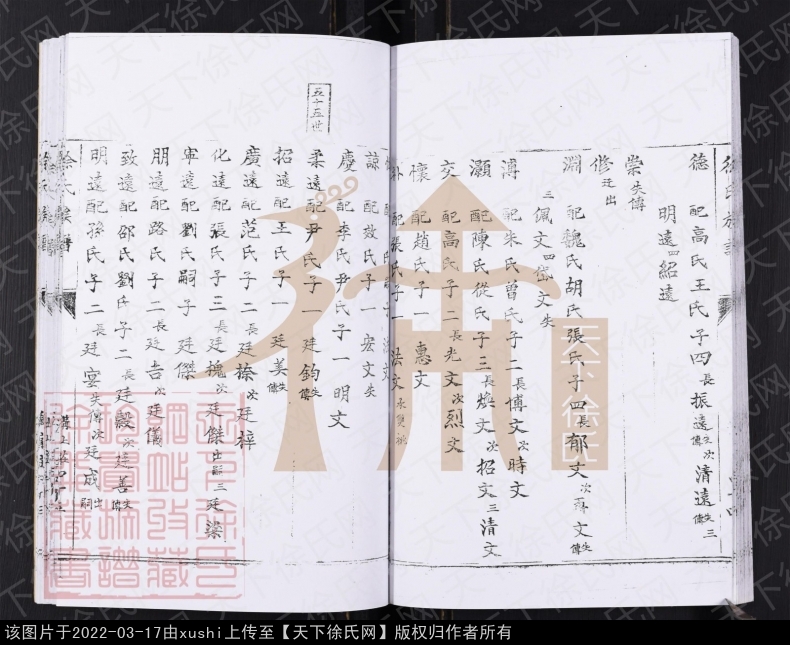 徐氏族譜
德 配高氏王氏子四長振遠失傳次清遠失傳三
明遠四紹遠
崇失傳
修迁出
淵 配魏氏胡氏張氏子四長郁文次 文失傳
三佩文四岱文失
溥 配朱氏曾氏子二長博文次時文
灝 配陳氏從氏子三長煥文次招文三清文
交 配高氏子二長光文次烈文
懷 配趙氏子一惠文
配張氏子一法文
諒 配效氏子一宏文失
慶 配李氏尹氏子一明文
五十五世
柔遠配尹氏子一廷鈞失傳
招遠配王氏子一廷美失傳
廣遠配范氏子二長廷搽次廷梓
化遠配張氏子三長廷桄次廷傑出嗣三廷樑
寧遠配劉氏嗣子廷傑
朋遠配路氏子二長廷吉次廷儀
致遠配邵氏劉氏子二長廷毅次廷善失傳
明遠配孫氏子二長廷宴失傳次廷成出嗣
徐氏族譜
天下徐氏
天下徐氏网
该图片于2022-03-17由xushi上传至【天下徐氏网】版权归作者所有